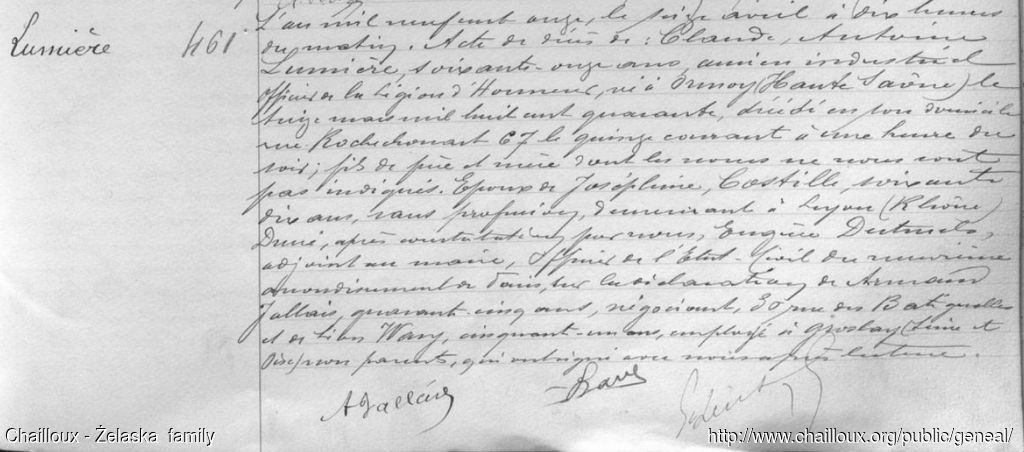 Lumière 461
L'an mil neuf cent onze, le seize avril à dix heures
du matin. Acte de décès de : Claude, Antoine
Lumière, soixante-onze ans, ancien industriel
officier de la Légion d'Honneur, né à Ormoy (Haute Saône) le
treize mars mil huit cent quarante, décédé en son domicile
rue Rochechouart 67 le quinze courant à une heure du
soir ; fils de père et mère dont les noms ne nous sont
pas indiqués. Epoux de Joséphine, Costille, soixante
dix ans, sans profession, demeurant à Lyon (Rhône)
Dressé, après constatation, par nous, Eugène
adjoint au maire, officier de l'Etat-Civil du neuvième
arrondissement de Paris, sur la déclaration de Armand
Jallais, quarante-cinq ans, négociant, rue des Batignolles
et de Léon cinquante-un ans, employé à Groslay (Seine et
Oise) non parents, qui ont signé avec nous après lecture.
A Jallais
Chailloux - Żelaska family
http://www.chailloux.org/public/geneal/